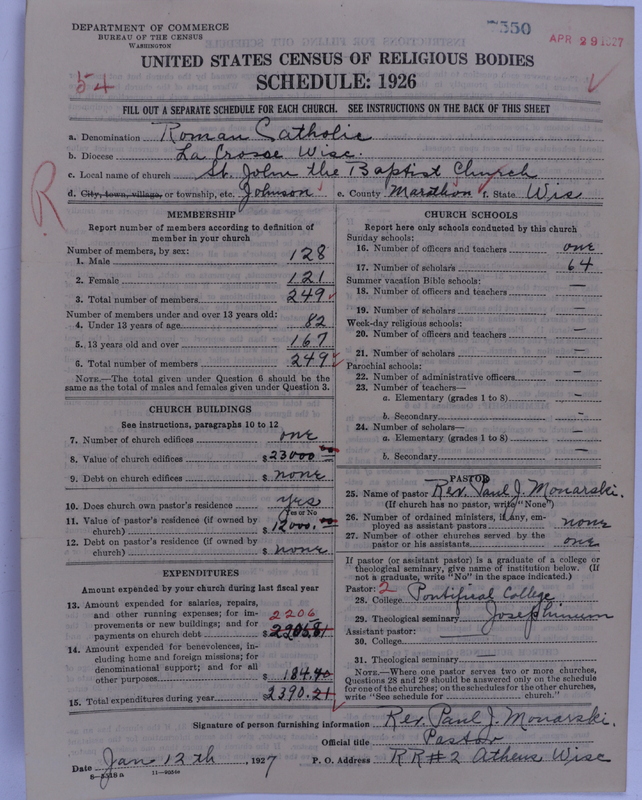 DEPARTMENT OF COMMERCE
BUREAU OF THE CENSUS
WASHINGTON
7350
APR 29 1927
UNITED STATES CENSUS OF RELIGIOUS BODIES
SCHEDULE: 1926
54
FILL OUT A SEPARATE SCHEDULE FOR EACH CHURCH. SEE INSTRUCTIONS ON THE BACK OF THIS SHEET
a. Denomination Roman Catholic
b. Diocese La Crosse Wisc.
c. Local name of church St. John the Baptist Church
d. City, town, village, or township, etc. Johnson e. County Marathon f. State Wis
R
MEMBERSHIP
Report number of members according to definition of
member in your church
Number of members, by sex:
1. Male 128
2. Female 121
3. Total number of members 249
Number of members under and over 13 years old:
4. Under 13 years of age 82
5. 13 years old and over 167
6. Total number of members 249
NOTE.—The total given under Question 6 should be the
same as the total of males and females given under Question 3.
CHURCH BUILDINGS
See instructions, paragraphs 10 to 12
7. Number of church edifices one
8. Value of church edifices $23000
9. Debt on church edifices $ none
10. Does church own pastor's residence yes
Yes or No
11. Value of pastor's residence (if owned by
church) $12000.
12. Debt on pastor's residence (if owned by
church) $ none
EXPENDITURES
Amount expended by your church during last fiscal year
13. Amount expended for salaries, repairs,
and other running expenses; for im-
provements or new buildings; and for
payments on church debt $2205.81
2206
14. Amount expended for benevolences, in-
cluding home and foreign missions; for
denominational support; and for all
other purposes $ 184.40
15. Total expenditures during year $2390.21
CHURCH SCHOOLS
Report here only schools conducted by this church
Sunday schools:
16. Number of officers and teachers one
17. Number of scholars 64
Summer vacation Bible schools:
18. Number of officers and teachers —
19. Number of scholars —
Week-day religious schools:
20. Number of officers and teachers —
21. Number of scholars —
Parochial schools:
22. Number of administrative officers —
23. Number of teachers—
a. Elementary (grades 1 to 8) —
b. Secondary -
24. Number of scholars—
a. Elementary (grades 1 to 8) —
b. Secondary -
PASTOR
25. Name of pastor Rev. Paul J. Monarski.
(If church has no pastor, write "None")
26. Number of ordained ministers, if any, em-
ployed as assistant pastors none
27. Number of other churches served by the
pastor or his assistants one
If pastor (or assistant pastor) is a graduate of a college or
theological seminary, give name of institution below. (If
not a graduate, write "No" in the space indicated.)
Pastor: 2
28. College Pontifical College
29. Theological seminary Josephinum
Assistant pastor:
30. College
31. Theological seminary —
NOTE.—Where one pastor serves two or more churches,
Questions 28 and 29 should be answered only on the schedule
for one of the churches; on the schedules for the other churches,
write "See schedule for church."
Signature of person furnishing information Rev. Paul J. Monarski.
Official title Pastor
Date Jan 12th, 1927 P. O. Address RR#2 Athens Wisc